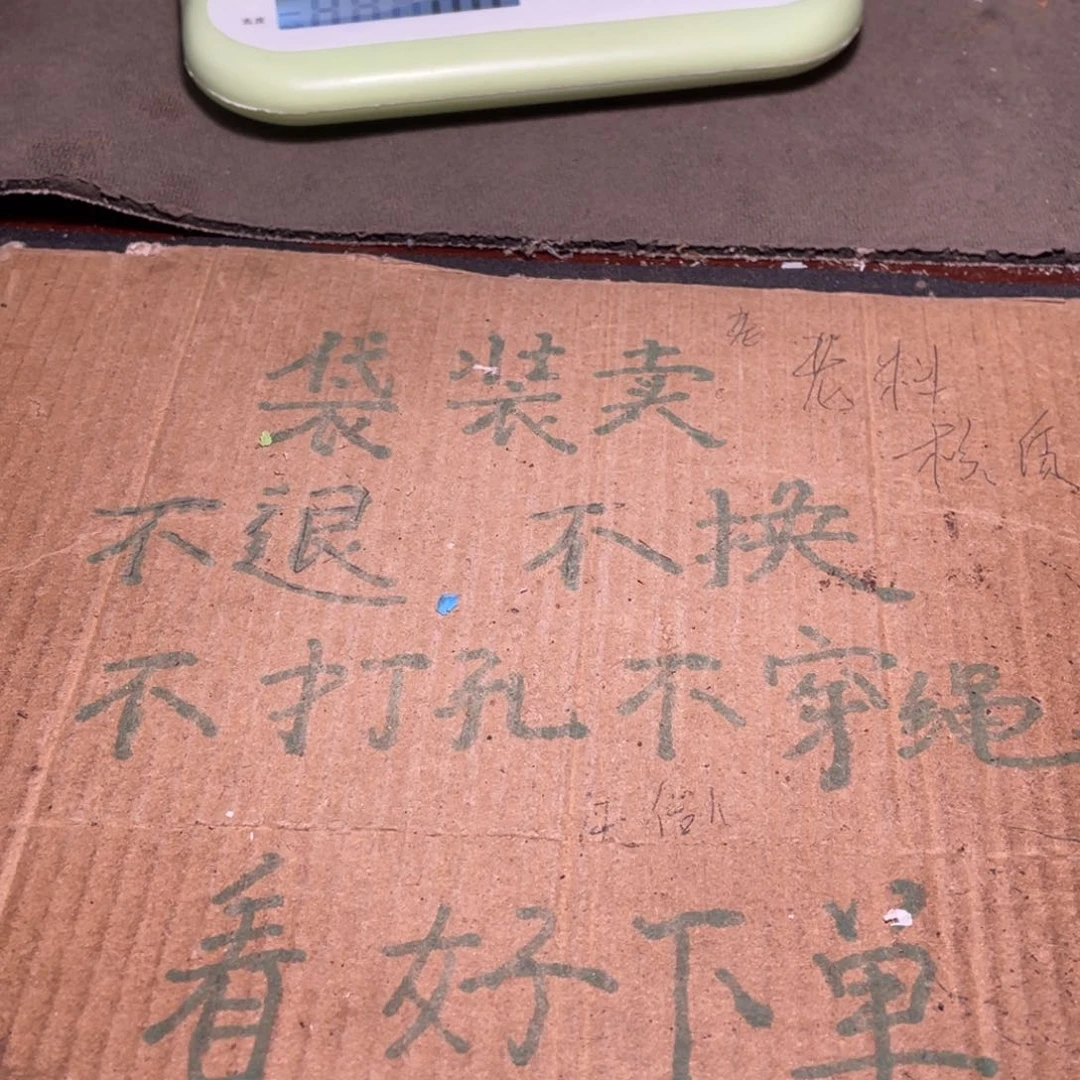 袋装卖
老料
不退 不换
不打孔不穿绳
看好下单